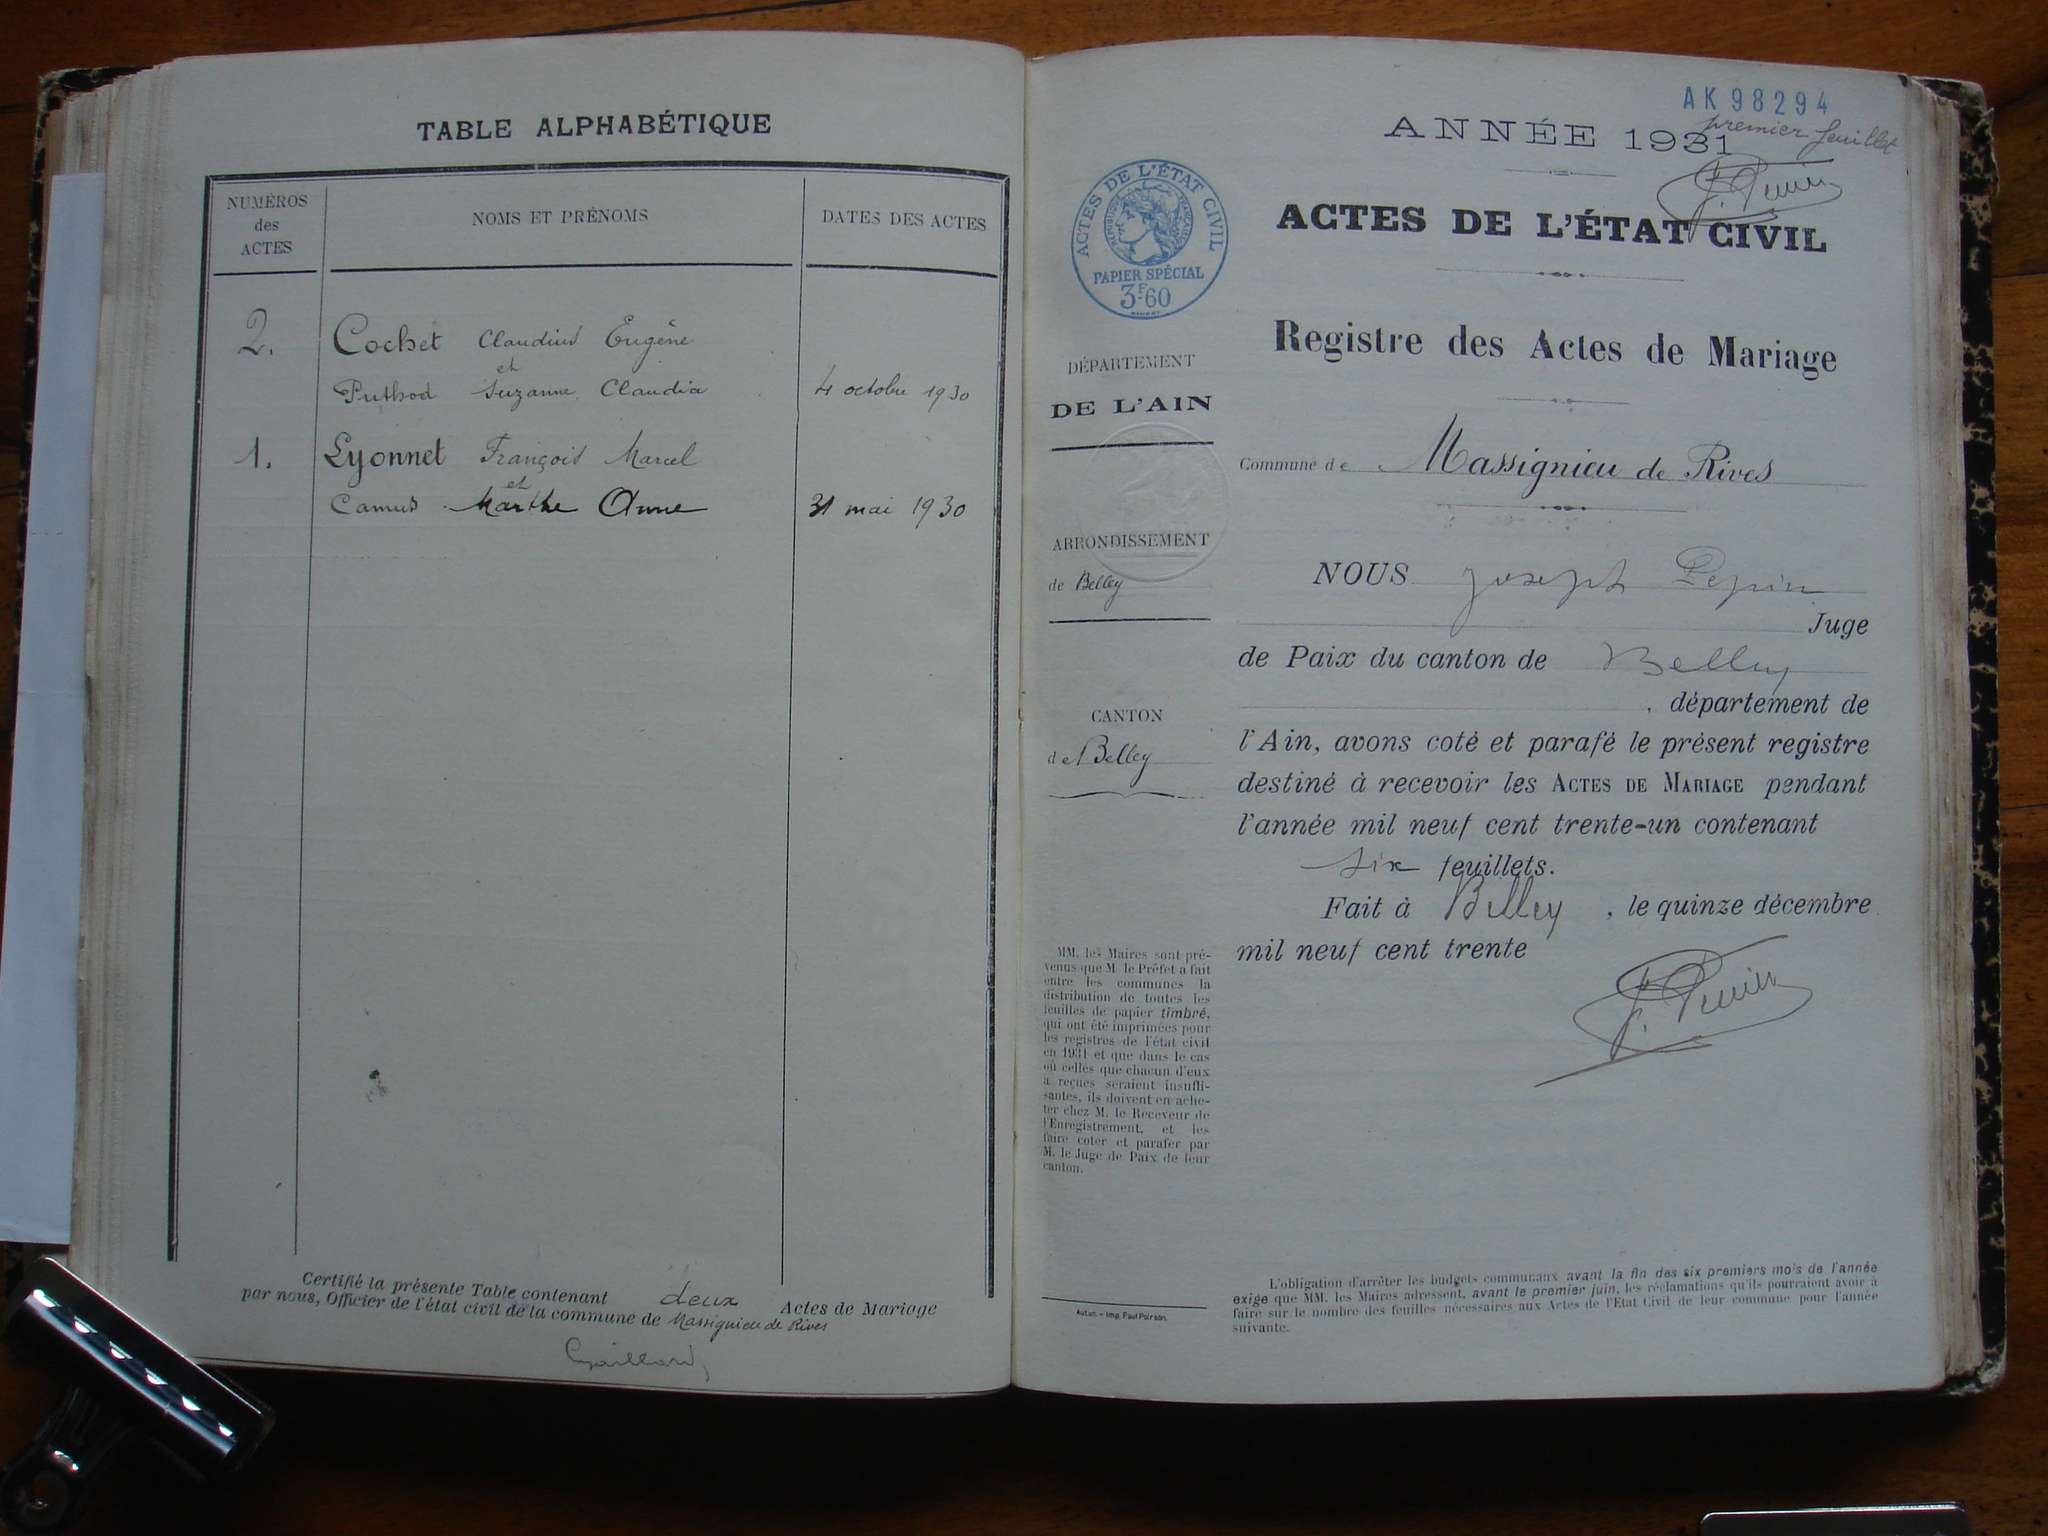 TABLE ALPHABÉTIQUE
NUMÉROS
des
ACTES
NOMS ET PRÉNOMS
DATES DES ACTES
2. Cochet Claudius Eugène
et
Puthod Suzanne Claudia 4 octobre 1930
1. Lyonnet François Marcel
et
Camus Marthe Anne 31 mai 1930
Certifié la présente Table contenant deux Actes de Mariage
par nous, Officier de l'état civil de la commune de Massignieu de Rives
Gaillard
AK 98294
premier feuillet
ANNÉE 1931
ACTES DE L'ÉTAT CIVIL
RÉPUBLIQUE FRANÇAISE
PAPIER SPÉCIAL
3F60
ACTES DE L'ÉTAT CIVIL
Registre des Actes de Mariage
DÉPARTEMENT
DE L'AIN
Commune de Massignieu de Rives
ARRONDISSEMENT
de Belley
CANTON
de Belley
NOUS Joseph Pepin
Juge
de Paix du canton de Belley
, département de
l'Ain, avons coté et parafé le présent registre
destiné à recevoir les ACTES DE MARIAGE pendant
l'année mil neuf cent trente-un contenant
six feuillets.
Fait à Belley, le quinze décembre
mil neuf cent trente
MM. les Maires sont pré-
venus que M. le Préfet a fait
entre les communes la
distribution de toutes les
feuilles de papier timbré,
qui ont été imprimées pour
les registres de l'état civil
en 1931 et que dans le cas
où celles que chacun d'eux
a reçues seraient insuffi-
santes, ils doivent en ache-
ter chez M. le Receveur de
l'Enregistrement, et les
faire coter et parafer par
M. le Juge de Paix de leur
canton.
Autun. – Imp. Paul Poirson.
L'obligation d'arrêter les budgets communaux avant la fin des six premiers mois de l'année
exige que MM. les Maires adressent, avant le premier juin, les réclamations qu'ils pourraient avoir à
faire sur le nombre des feuilles nécessaires aux Actes de l'Etat Civil de leur commune pour l'année
suivante.